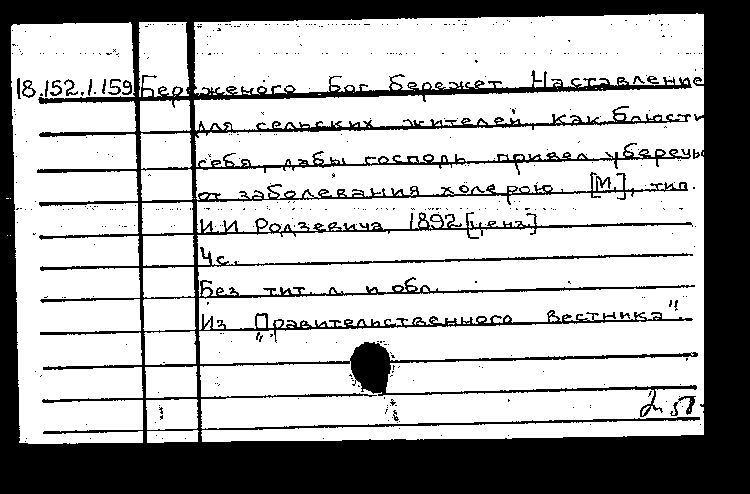 18.152.1.159 Береженого Бог бережет. Наставление
для сельских жителей, как блюсти
себя, дабы господь привел уберечь
от заболевания холерою. [М.], тип.
И.И. Родзевича, 1892 [ценз.]
4с.
Без тит. л. и обл.
Из "Правительственного вестника".